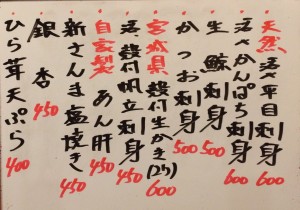 天然活〆平目刺身 600
活〆かんぱち刺身 600
生鯨刺身 500
かつお刺身 500
宮城県殻付生かき(2ヶ) 600
活殻付帆立刺身 450
自家製あん肝 450
新さんま塩焼き 450
銀杏 450
ひら茸天ぷら 400